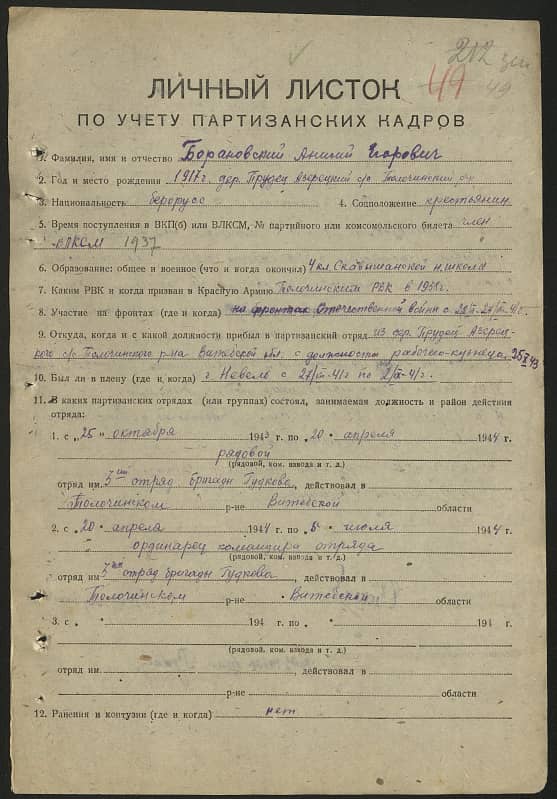 212
49
49
ЛИЧНЫЙ ЛИСТОК
ПО УЧЕТУ ПАРТИЗАНСКИХ КАДРОВ
1. Фамилия, имя и отчество Борановский Егорович
2. Год и место рождения 1917 г. дер. Прудец Азерецкий с/с Толочинский
3. Национальность белорусс 4. Соцположение крестьянин
5. Время поступления в ВКП(б) или ВЛКСМ, № партийного или комсомольского билета член
ВЛКСМ 1937
6. Образование: общее и военное (что и когда окончил) 4 кл. н. школа
7. Каким РВК и когда призван в Красную Армию Толочинским РВК в
8. Участие на фронтах (где и когда) на фронтах Отечественной войны с
9. Откуда, когда и с какой должности прибыл в партизанский отряд из дер. Прудец Азерец-
кого с/с Толочинского р-на Витебской обл. с должности рабочего-кузнеца
10. Был ли в плену (где и когда) г. Невель с
11. В каких партизанских отрядах (или группах) состоял, занимаемая должность и район действия
отряда:
1. с "25" октября 1943 г. по "20" апреля 1944 г.
рядовой
(рядовой, ком. взвода и т. д.)
отряд им. 3ий отряд бригады Гудкова, действовал в
Толочинском р-не Витебской области
2. с "20" апреля 1944 г. по "5" июля 1944 г.
ординарец командира отряда
(рядовой, ком. взвода и т. д.)
отряд им 3ий отряд бригады Гудкова, действовал в
Толочинском р-не Витебской области
3. с " " 194 г. по " " 194 г.
(рядовой, ком. взвода и т. д.)
отряд им. , действовал в
р-не области
12. Ранения и контузии (где и когда) нет